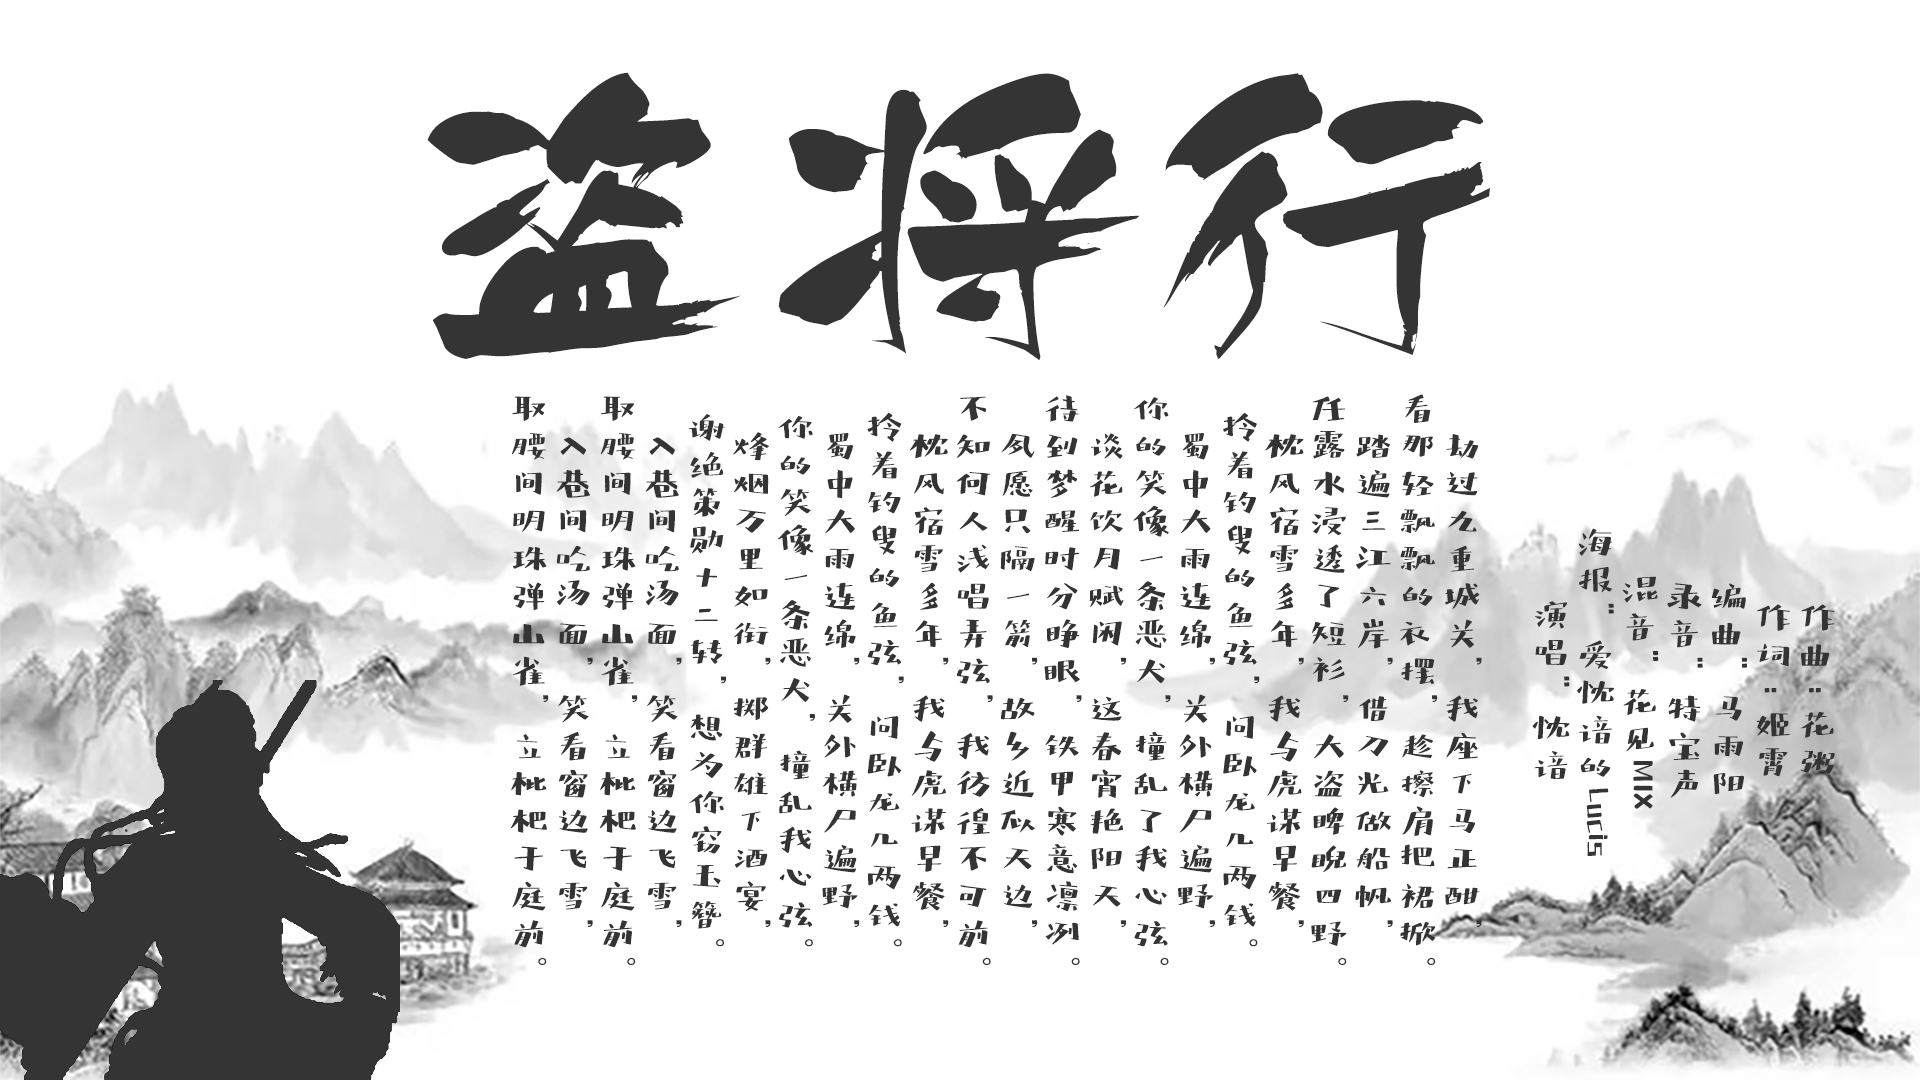 盗将行
作曲：花粥
作词：姬霄
编曲：马雨阳
录音：特宝声
混音：花见 MIX
海报：爱忱谙的 Lucis
演唱：忱谙
劫过九重城关，我座下马正酣，
看那轻飘飘的衣摆，趁擦肩把裙掀。
踏遍三江六岸，借刀光做船帆，
任露水浸透了短衫，大盗睥睨四野。
枕风宿雪多年，我与虎谋早餐，
拎着钓叟的鱼弦，问卧龙几两钱。
蜀中大雨连绵，关外横尸遍野，
你的笑像一条恶犬，撞乱了我心弦。
谈花饮月赋闲，这春宵艳阳天，
待到梦醒时分睁眼，铁甲寒意凛冽。
夙愿只隔一箭，故乡近似天边，
不知何人浅唱弄弦，我彷徨不可前。
枕风宿雪多年，我与虎谋早餐，
拎着钓叟的鱼弦，问卧龙几两钱。
蜀中大雨连绵，关外横尸遍野，
你的笑像一条恶犬，撞乱我心弦。
烽烟万里如衔，掷群雄下酒宴，
谢绝策勋十二转，想为你窃玉簪。
入巷间吃汤面，笑看窗边飞雪，
取腰间明珠弹山雀，立枇杷于庭前。
入巷间吃汤面，笑看窗边飞雪，
取腰间明珠弹山雀，立枇杷于庭前。